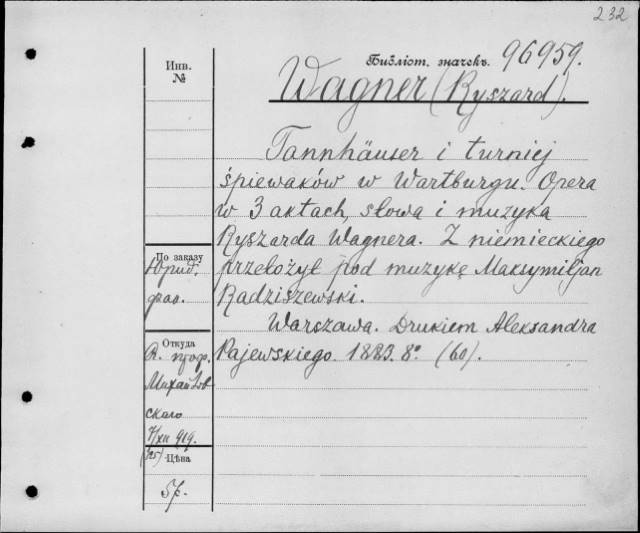 232
Библіот. значекъ. 96959.
Инв.
№
Wagner (Ryszard).
Tannhäuser i turniej
śpiewaków w Wartburgu. Opera
w 3 aktach, słowa i muzyka
Ryszarda Wagnera. Z niemieckiego
przełożył pod muzykę Maksymiljan
Radziszewski.
Warszawa. Drukiem Aleksandra
Pajewskiego. 1883. 8° (60).
По заказу
Юрид.
фак.
Откуда
проф.
Михайлов
скаго
7/XII 919.
(125)
Цѣна
5р.